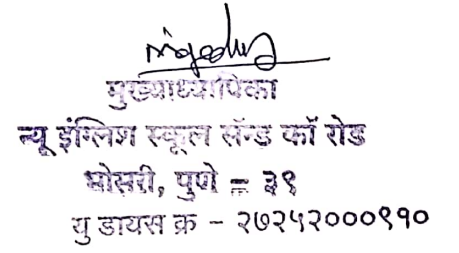 मुख्याध्यापिका
न्यू इंग्लिश स्कूल सॅन्ड कॉ रोड
भोसरी, पुणे = ३९
यु डायस क्र - २७२५२०००९१०